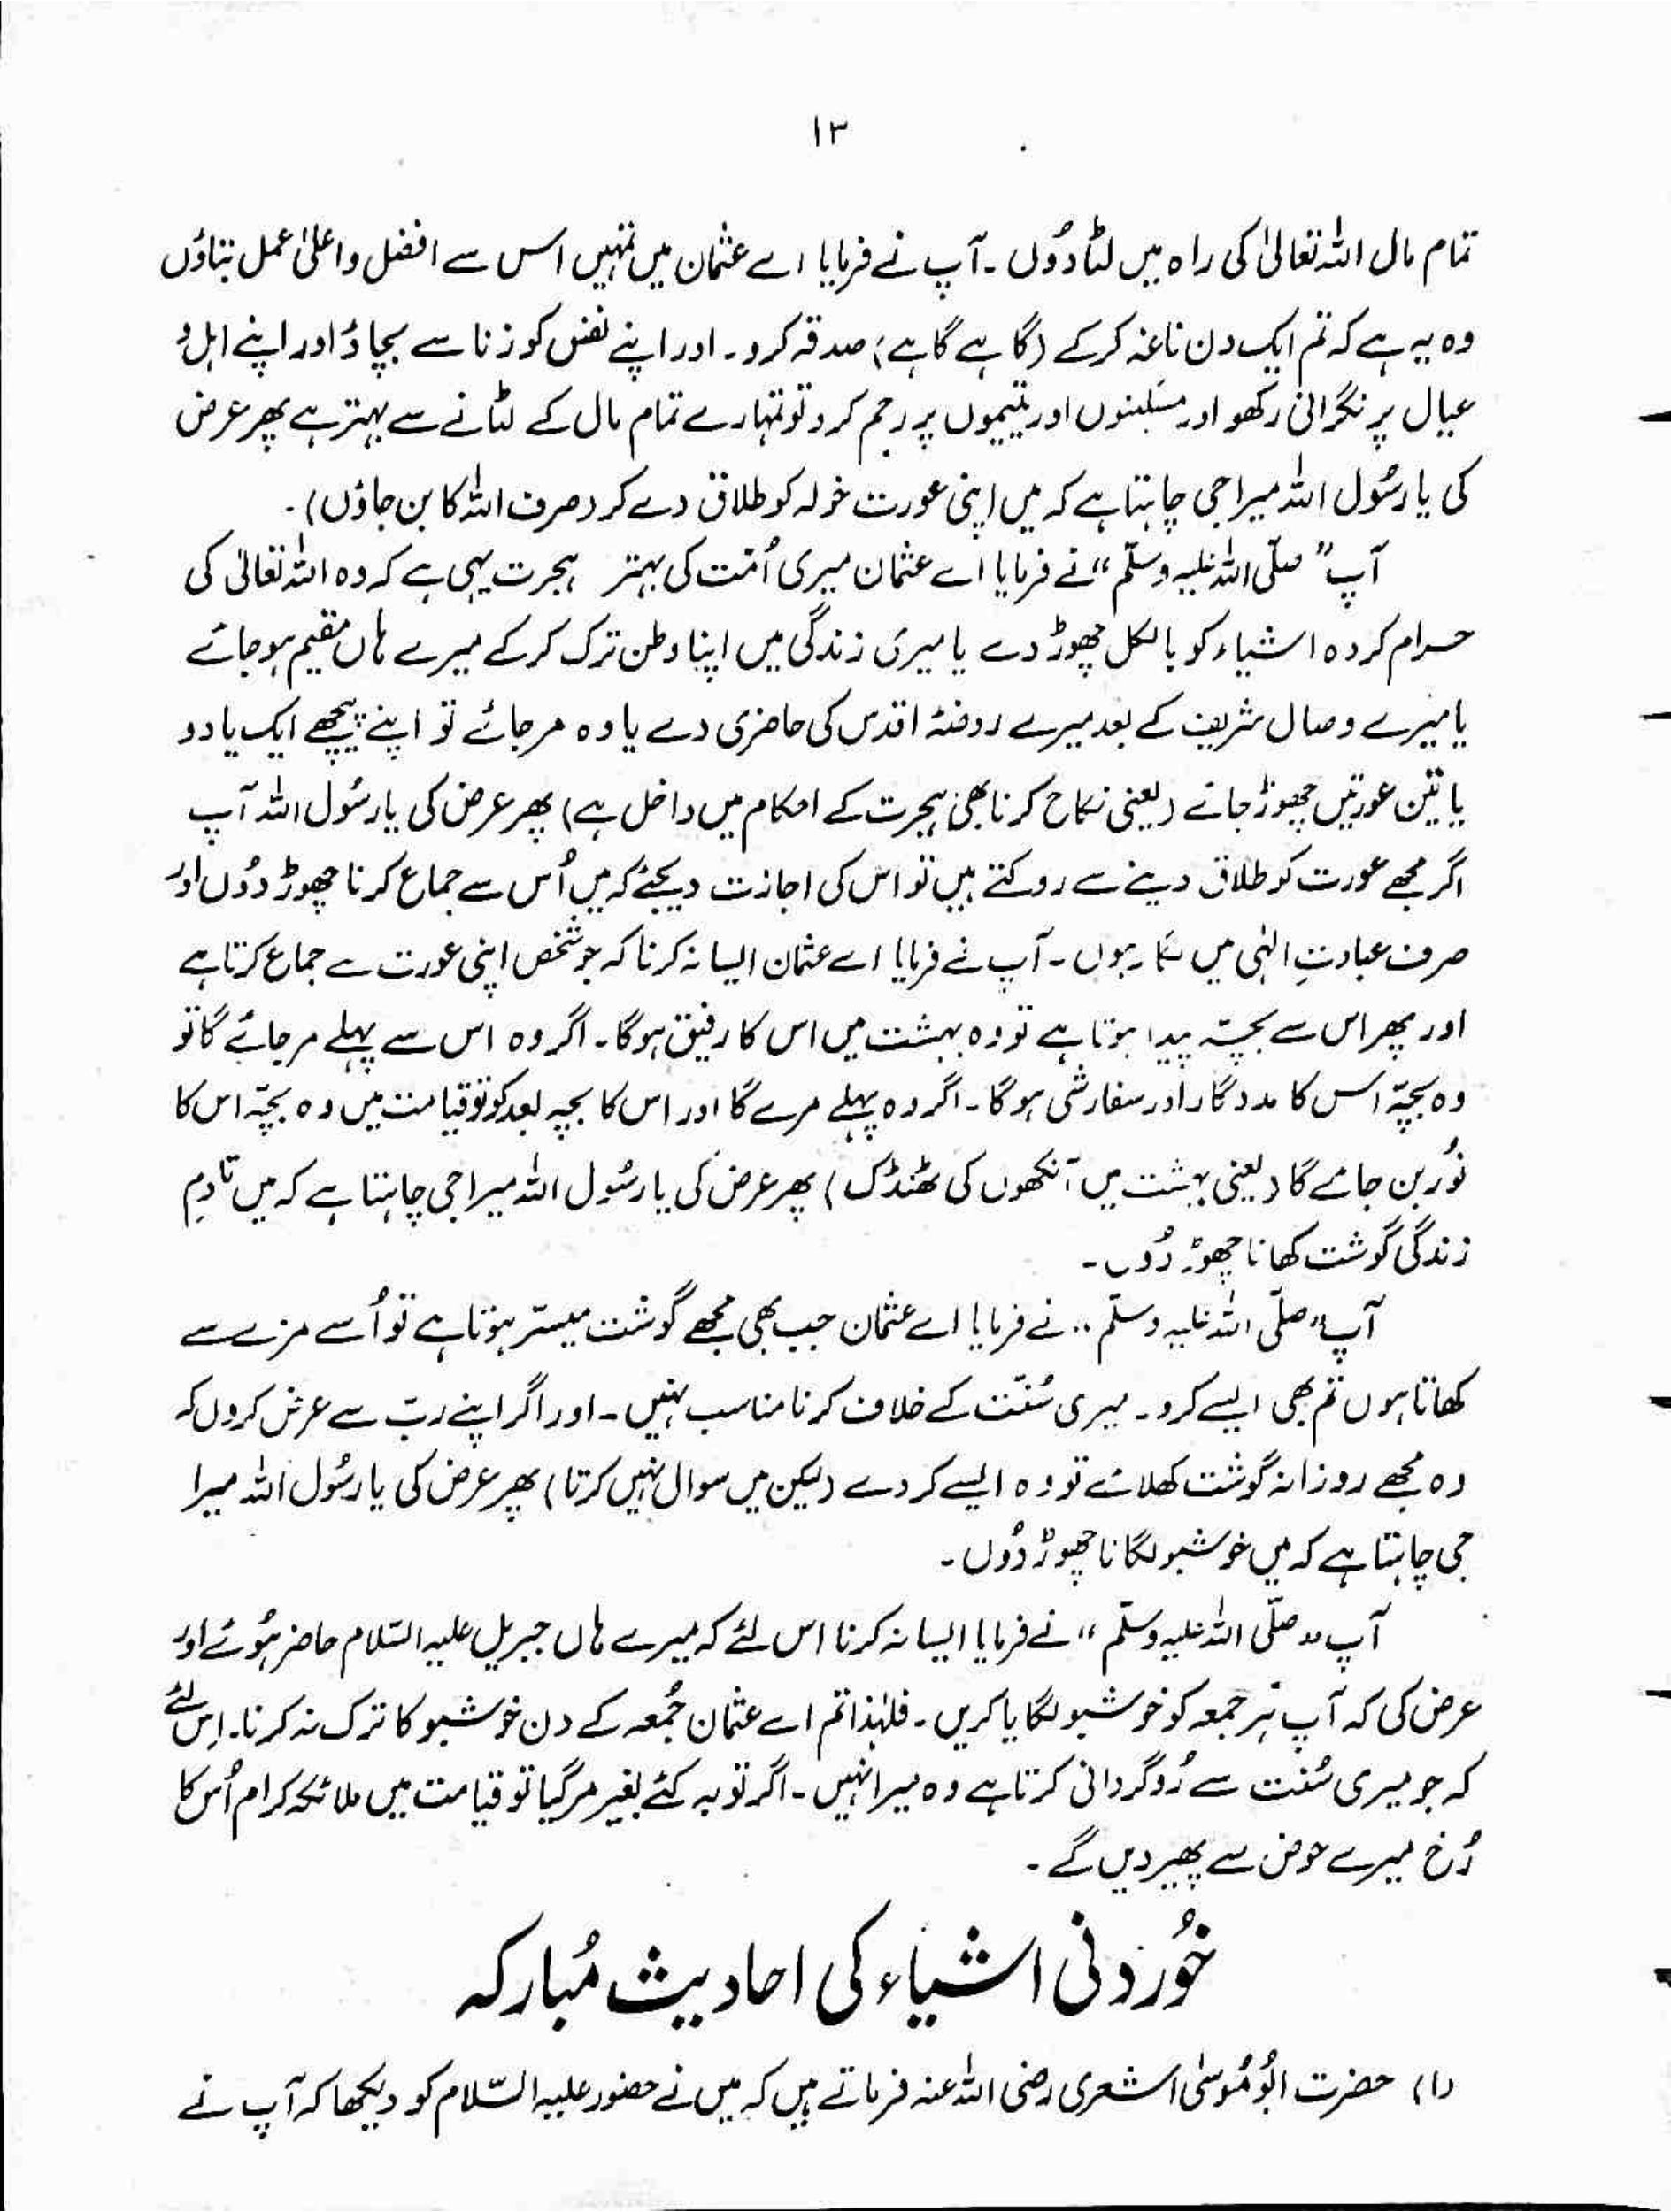 ۱۳
تمام مال اللہ تعالیٰ کی راہ میں لٹا دُوں ۔ آپ نے فرمایا اے عثمان میں تمہیں اس سے افضل و اعلیٰ عمل بتاؤں
وہ یہ ہے کہ تم ایک دن ناغہ کرکے (گاہے گاہے) صدقہ کرو۔ اور اپنے نفس کو زنا سے بچاؤ اور اپنے اہل و
عیال پر نگرانی رکھو اور مسکینوں اور یتیموں پر رحم کرو تو تمہارے تمام مال کے لٹانے سے بہتر ہے پھر عرض
کی یا رسُول اللہ میرا جی چاہتا ہے کہ میں اپنی عورت خولہ کو طلاق دے کر (صرف اللہ کا بن جاؤں) ۔
آپ ”صلّی اللہ علیہ وسلّم“ نے فرمایا اے عثمان میری اُمّت کی بہتر ہجرت یہی ہے کہ وہ اللہ تعالیٰ کی
حرام کردہ اشیاء کو بالکل چھوڑ دے یا میری زندگی میں اپنا وطن ترک کرکے میرے ہاں مقیم ہو جائے
یا میرے وصال شریف کے بعد میرے روضۂ اقدس کی حاضری دے یا وہ مر جائے تو اپنے پیچھے ایک یا دو
یا تین عورتیں چھوڑ جائے (یعنی نکاح کرنا بھی ہجرت کے احکام میں داخل ہے) پھر عرض کی یا رسُول اللہ آپ
اگر مجھے عورت کو طلاق دینے سے روکتے ہیں تو اس کی اجازت دیجئے کہ میں اُس سے جماع کرنا چھوڑ دُوں اور
صرف عبادتِ الہٰی میں لگا رہوں ۔ آپ نے فرمایا اے عثمان ایسا نہ کرنا کہ جو شخص اپنی عورت سے جماع کرتا ہے
اور پھر اس سے بچہّ پیدا ہوتا ہے تو وہ بہشت میں اس کا رفیق ہوگا ۔ اگر وہ اس سے پہلے مر جائے گا تو
وہ بچہّ اس کا مددگار اور سفارشی ہوگا ۔ اگر وہ پہلے مرے گا اور اس کا بچہ بعد کو تو قیامت میں وہ بچہّ اس کا
نُور بن جائے گا (یعنی بہشت میں آنکھوں کی ٹھنڈک) پھر عرض کی یا رسُول اللہ میرا جی چاہتا ہے کہ میں تا دمِ
زندگی گوشت کھانا چھوڑ دُوں ۔
آپ ”صلّی اللہ علیہ وسلّم“ نے فرمایا اے عثمان جب بھی مجھے گوشت میسّر ہوتا ہے تو اُسے مزے سے
کھاتا ہوں تم بھی ایسے کرو ۔ میری سُنّت کے خلاف کرنا مناسب نہیں ۔ اور اگر اپنے ربّ سے عرض کروں کہ
وہ مجھے روزانہ گوشت کھلائے تو وہ ایسے کر دے (لیکن میں سوال نہیں کرتا) پھر عرض کی یا رسُول اللہ میرا
جی چاہتا ہے کہ میں خوشبو لگانا چھوڑ دُوں ۔
آپ ”صلّی اللہ علیہ وسلّم“ نے فرمایا ایسا نہ کرنا اس لئے کہ میرے ہاں جبریل علیہ السّلام حاضر ہُوئے اور
عرض کی کہ آپ ہر جمعہ کو خوشبو لگایا کریں ۔ فلہٰذا تم اے عثمان جُمعہ کے دن خوشبو کا ترک نہ کرنا ۔ اِس لئے
کہ جو میری سُنّت سے رُوگردانی کرتا ہے وہ میرا نہیں ۔ اگر توبہ کئے بغیر مر گیا تو قیامت میں ملائکہ کرام اُس کا
رُخ میرے حوض سے پھیر دیں گے ۔
خُوردنی اشیاء کی احادیث مُبارکہ
(۱) حضرت ابُو مُوسٰی اشعری رضی اللہ عنہ فرماتے ہیں کہ میں نے حضور علیہ السّلام کو دیکھا کہ آپ نے